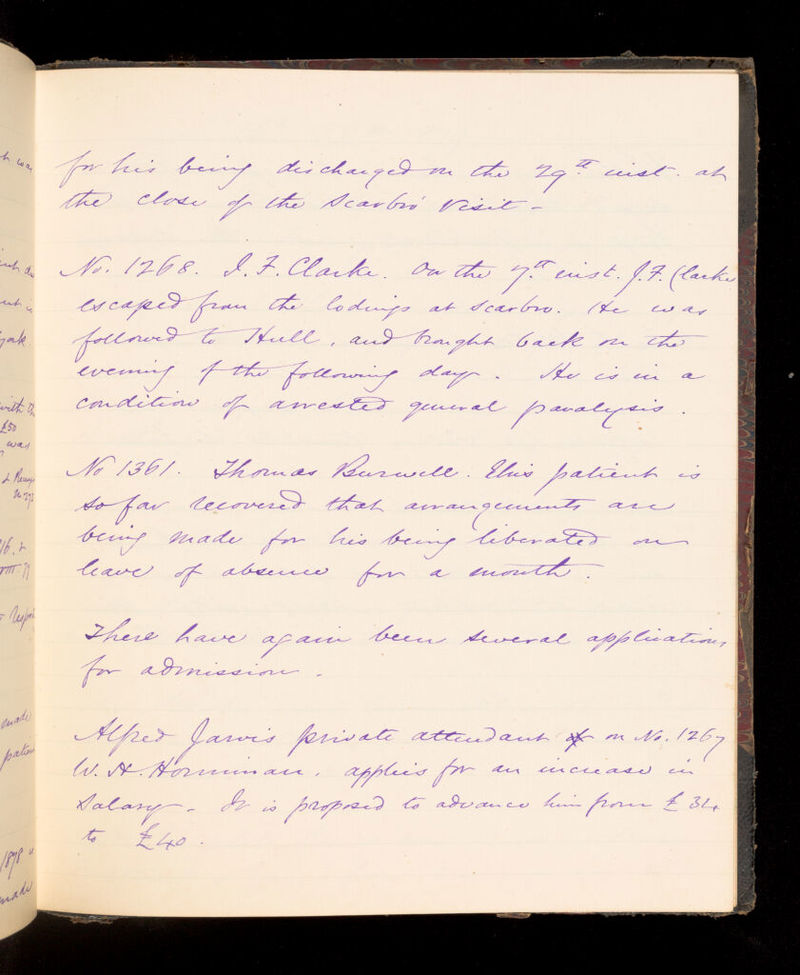 for his being discharged on the 29th inst. at
the close of the Scarbro' Visit -
No. 1268. J. F. Clarke. On the 7th inst. J. F. Clarke
escaped from the lodings at Scarbro. He was
followed to Hull, and brought back on the
evening of the following day. He is in a
condition of arrested general paralysis.
No 1361. Thomas Burwell. This patient is
so far recovered that arrangements are
being made for his being liberated on
leave of absence for a month.
There have again been several applications
for admission.
Alfred Jarvis private attendant on No. 1267
W. H. Horniman. applies for an increase in
Salary - It is proposed to advance him from £34
to £40.